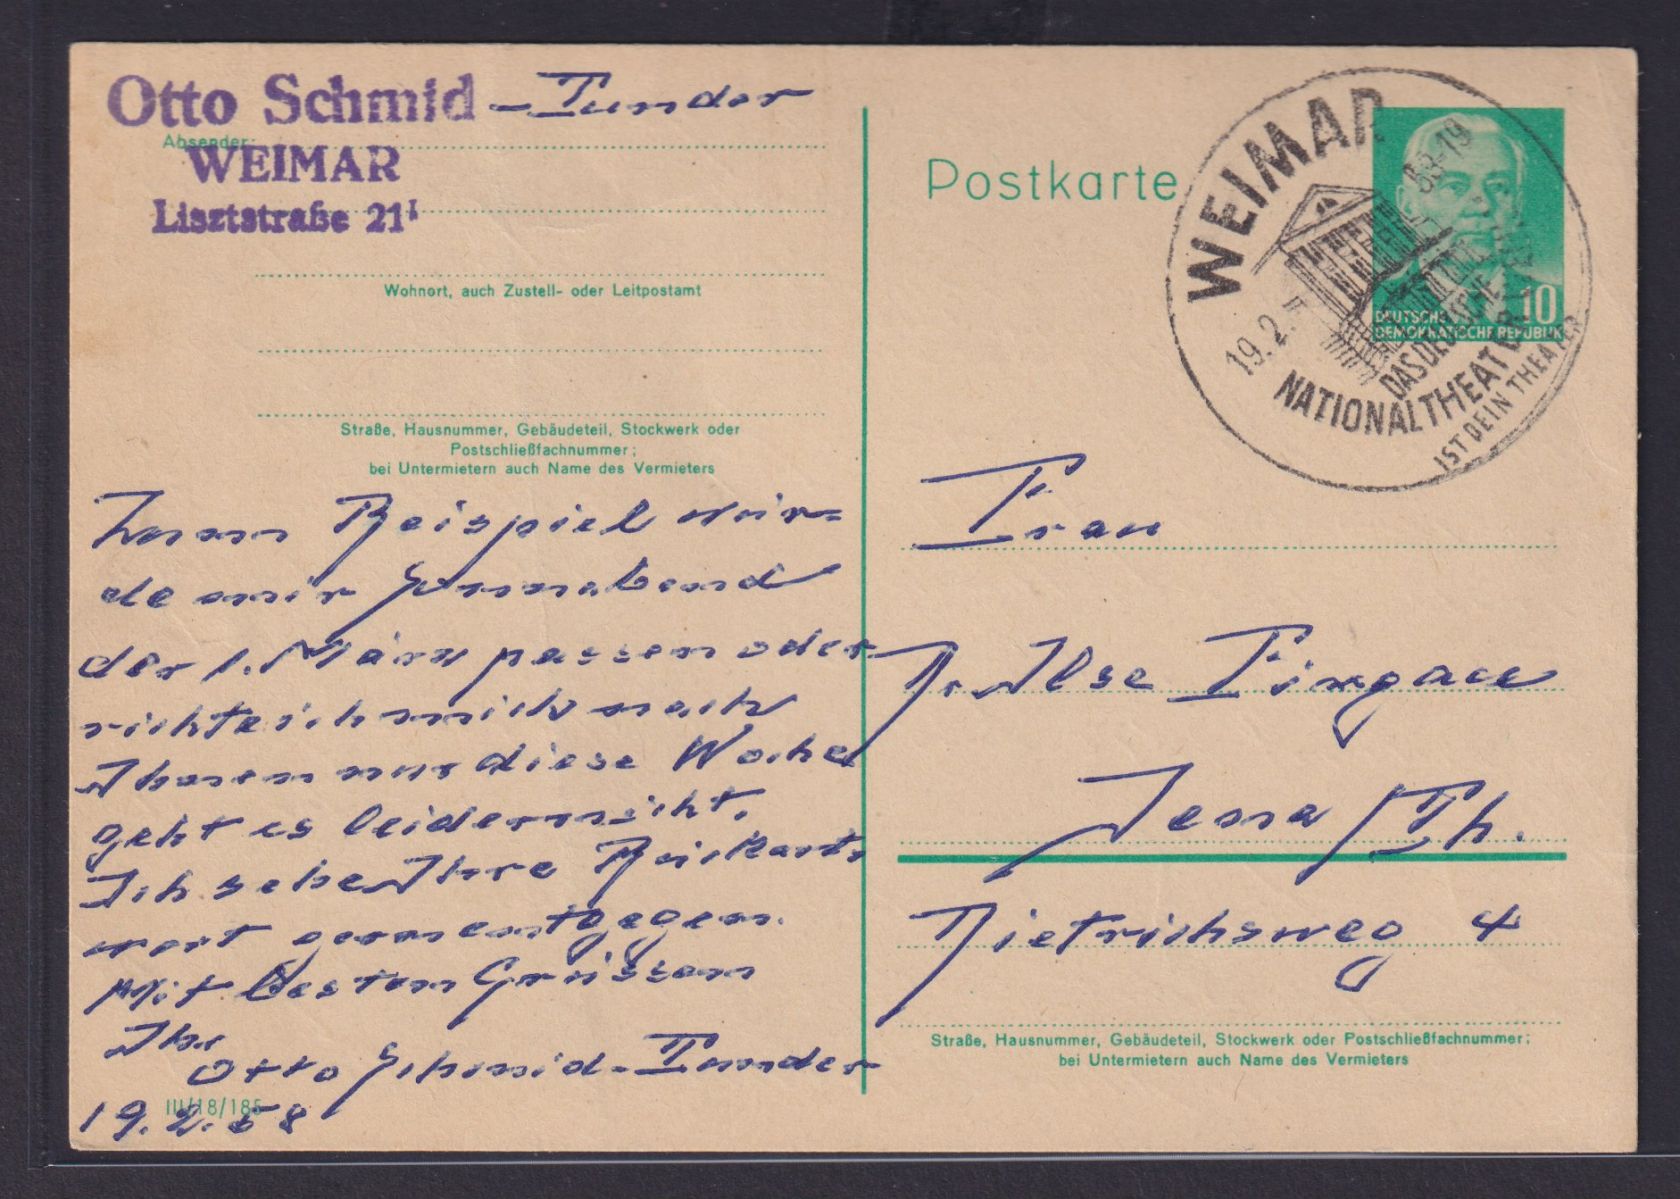 Otto Schmid - Tunder
Absender:
WEIMAR
Lisztstraße 21 I
Wohnort, auch Zustell- oder Leitpostamt
Straße, Hausnummer, Gebäudeteil, Stockwerk oder
Postschließfachnummer;
bei Untermietern auch Name des Vermieters
Zum Beispiel wür=
de mir Sonnabend
der 1. März passen oder
richte ich mich nach
Ihnen nur diese Woche
geht es leider nicht.
Ich sehe Ihre Rückant-
wort gern entgegen.
Mit besten Grüssen
Ihr
Otto Schmid-Tunder
III/18/185
19.2.58
Postkarte
WEIMAR
19.2.
-19
DAS DEUTSCHE
NATIONALTHEATER
IST DEIN THEATER
10
DEUTSCHE
DEMOKRATISCHE REPUBLIK
Frau
Dr. Ilse
Jena / Th.
Dietrichsweg 4
Straße, Hausnummer, Gebäudeteil, Stockwerk oder Postschließfachnummer;
bei Untermietern auch Name des Vermieters